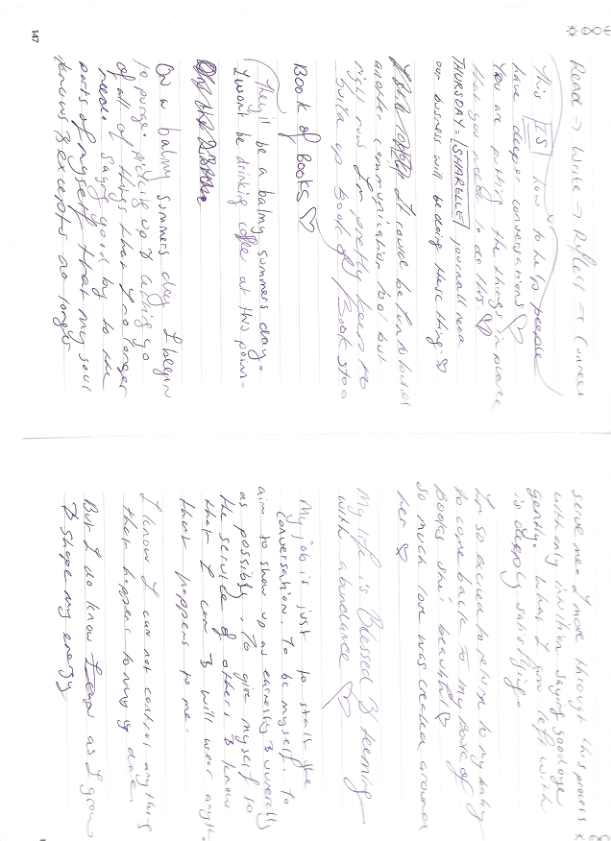 Read → Write → Reflect → Connect
This IS how to help people
have deeper conversations ♡
You are putting the things in place
that you need to do this ♡
THURSDAY = SHARLLE journall read
our business will be doing these things ♡
I could be fun to build
another communication tool but
right now I'm pretty keen to
build up Book of / Book stoo
Book of Books ♡
They'll be a balmy summers day.
I wont be drinking coffee at this point-
On a balmy summers day I begin
to purge. Picking up & letting go
of all of things that I no longer
need. Saying good by to the
parts of myself that my soul
knows & excepts no longer
147
serve me. I move through this process
with only intuition saying goodbye
gently. What I you left with
is deeply satisfying.
I'm so excited to return to my baby
to come back to my Book of
Books she's beautiful ♡
so much love was created around
her ♡
My life is Blessed & teeming
with abundance ♡
My job is just to start the
conversation. To be myself. To
aim to show up as earnestly & overally
as possibly. To give myself to
the service of others & know
that I can & will wear anyth.
that happens to me.
I know I can not control anything
that happens to my
But I do know as I grow
& shape my energy